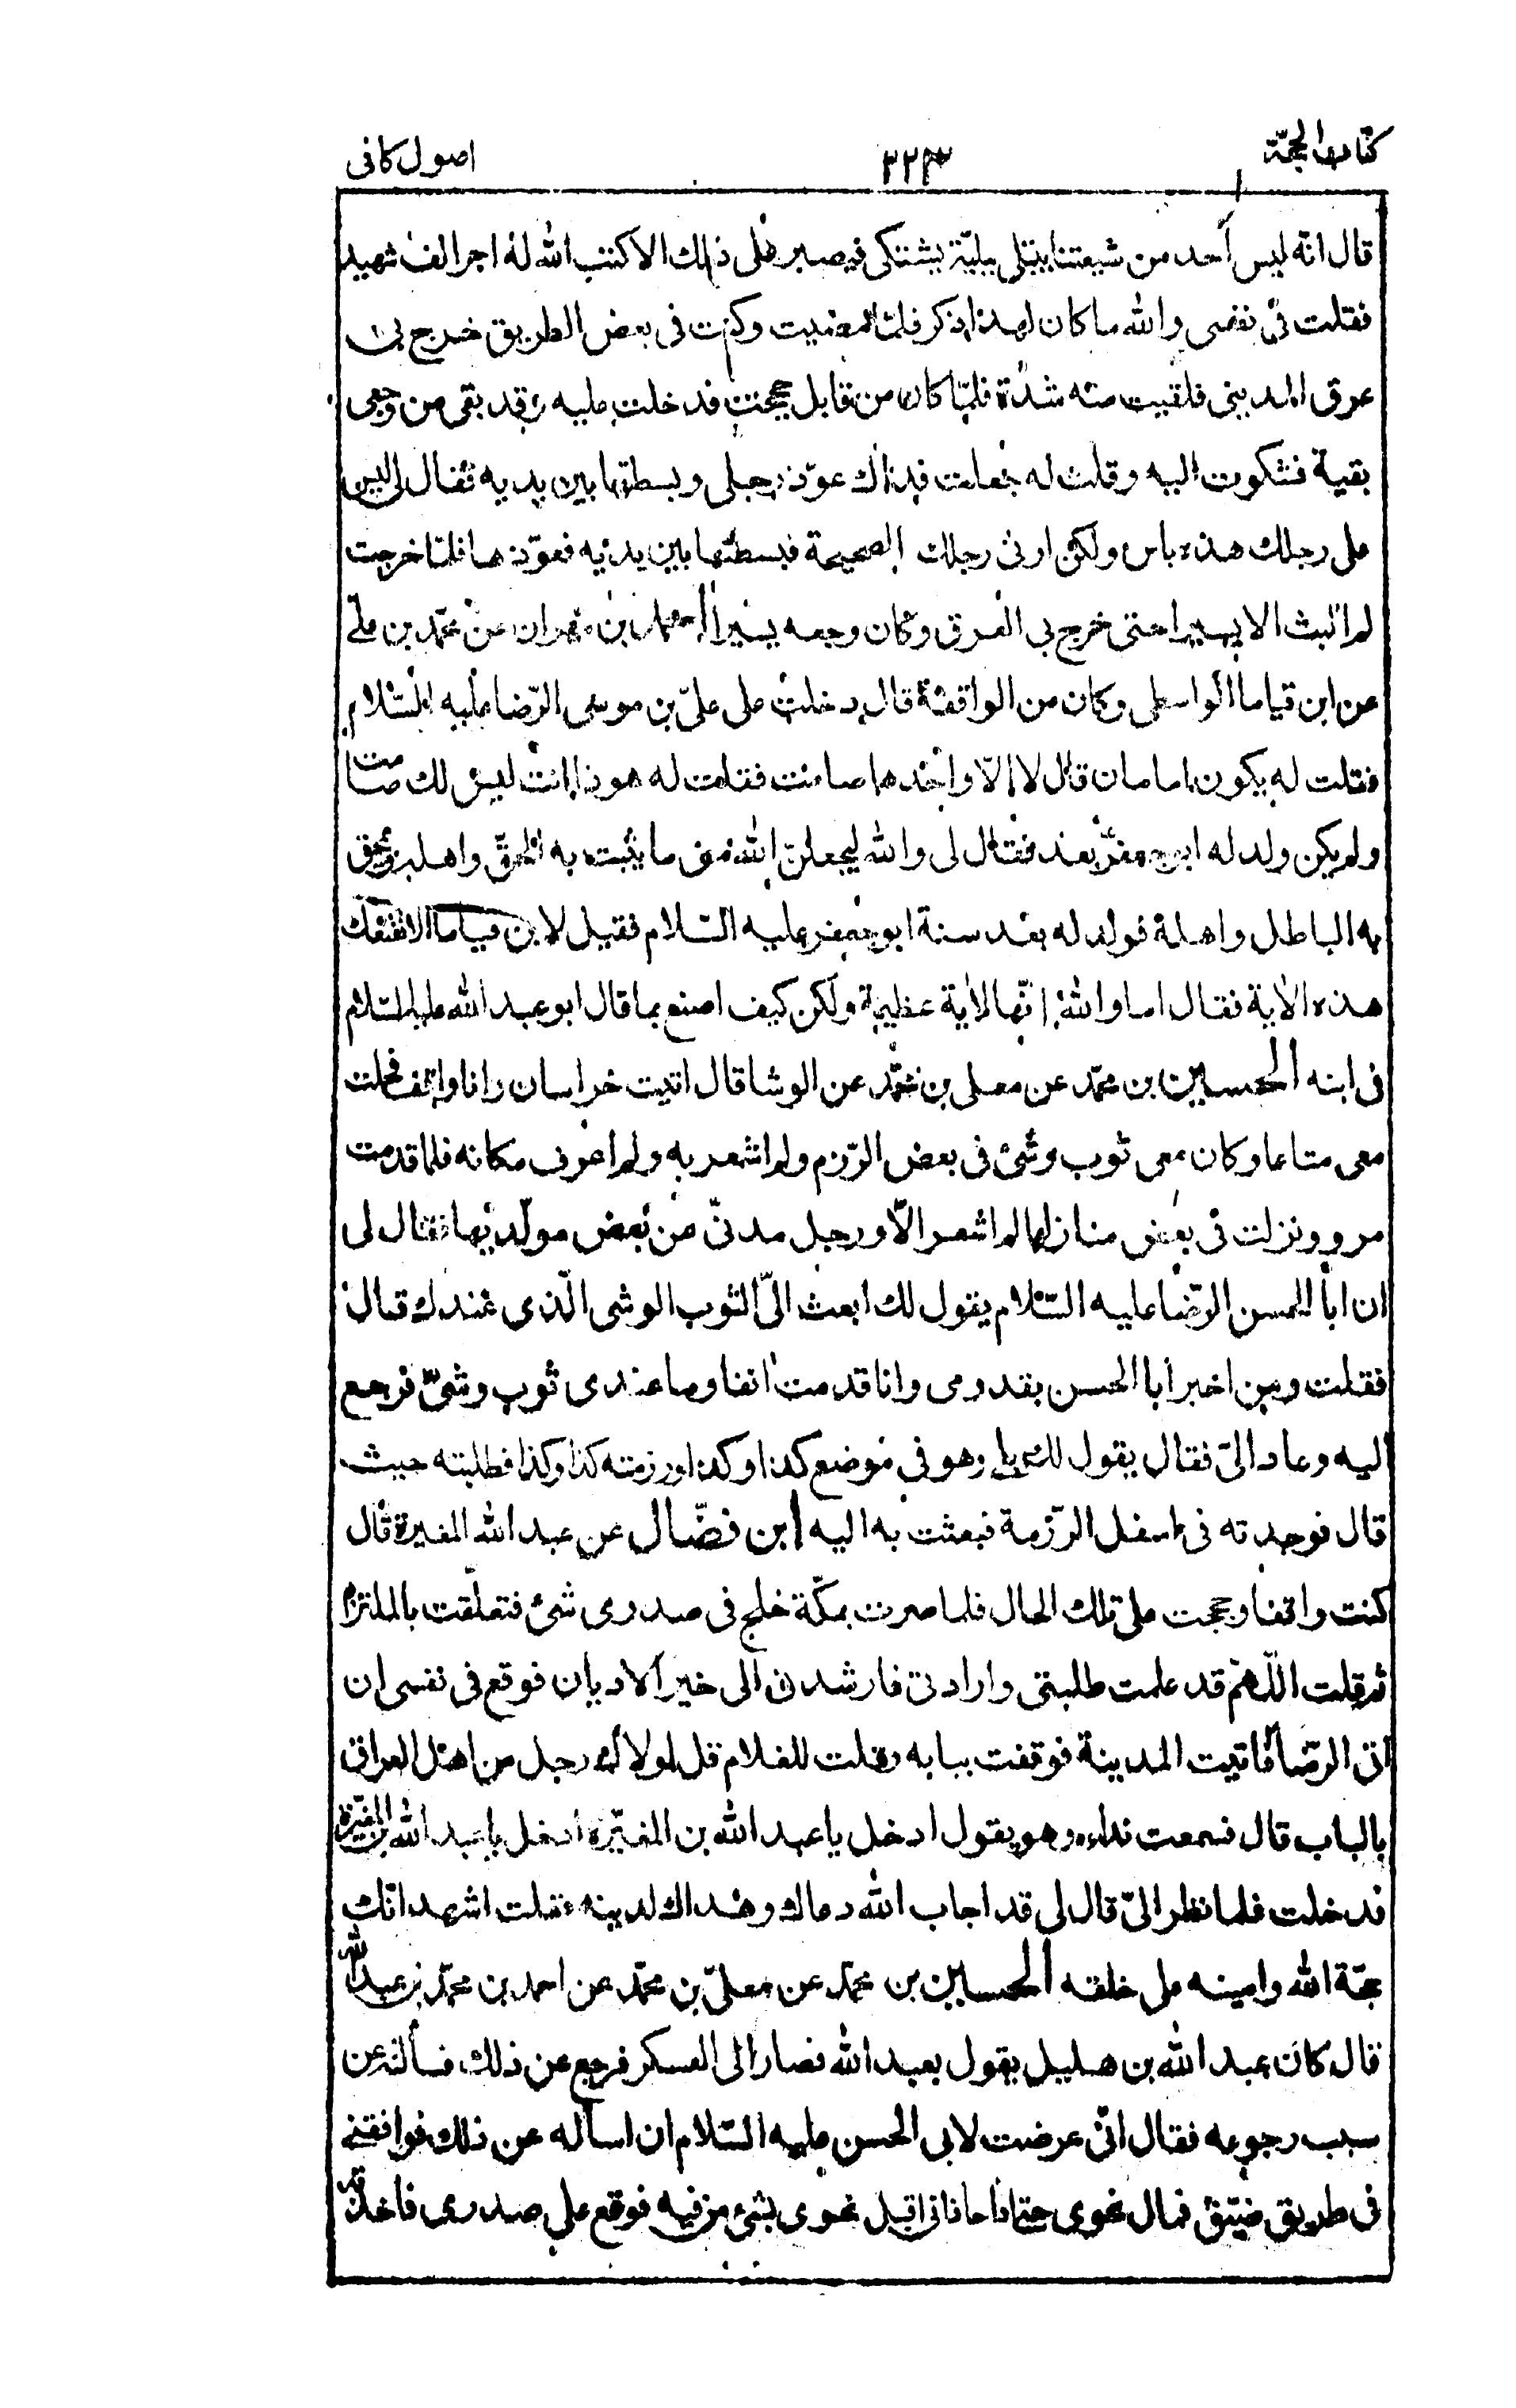 كتاب الحجّة
٣٢٣
اصول كافى
قال انّه ليس أحد من شيعتنا يبتلى ببليّة يشتكى فيصبر على ذلك الا كتب الله له اجر الف شهيد
فقلت فى نفسى والله ما كان لهذا ذكر فلمّا مضيت وكنت فى بعض الطريق خرج بى
عرق المدينى فلقيت منه شدّة فلمّا كان من قابل حججت فدخلت عليه وقد بقى من وجعى
بقية فشكوت اليه وقلت له جعلت فداك عوّذ رجلى وبسطتها بين يديه فقال لى ليس
على رجلك هذه باس ولكن ارنى رجلك الصحيحة فبسطتها بين يديه فعوّذها فلمّا خرجت
لم البث الا يسيرا حتى خرج بى العرق وكان وجعه يسيرا احمد بن مهران عن محمّد بن على
عن ابن قياما الواسطى وكان من الواقفة قال دخلت على علىّ بن موسى الرّضا عليه السّلام
فقلت له يكون امامان قال لا الّا واحدهما صامت فقلت له هو ذا انت ليس لك صامت
ولم يكن ولد له ابو جعفر بعد فقال لى والله ليجعلنّ الله منى ما يثبت به الحقّ واهله ويمحق
به الباطل واهله فولد له بعد سنة ابو جعفر عليه السّلام فقيل لابن قياما الا تقنعك
هذه الاية فقال اما والله انّها لاية عظيمة ولكن كيف اصنع بما قال ابو عبد الله عليه السّلام
فى ابنه الحسين بن محمّد عن معلى بن محمّد عن الوشا قال اتيت خراسان وانا واقف فحملت
معى متاعا وكان معى ثوب وشئ فى بعض الرّزم ولم اشعر به ولم اعرف مكانه فلما قدمت
مرو ونزلت فى بعض منازلها لم اشعر الّا ورجل مدنىّ من بعض مولّديها فقال لى
ان ابا الحسن الرّضا عليه السّلام يقول لك ابعث الىّ الثوب الوشى الّذى عندك قال
فقلت ومن اخبر أبا الحسن بقدومى وانا قدمت انفا وما عندى ثوب وشىّ فرجع
اليه وعاد الىّ فقال يقول لك بلى وهو فى موضع كذا وكذا ورزمته كذا وكذا فطلبته حيث
قال فوجدته فى اسفل الرّزمة فبعثت به اليه ابن فضّال عن عبد الله المغيرة قال
كنت واقفا وحججت على تلك الحال فلما صرت بمكّة خلج فى صدرى شئ فتعلّقت بالملتزم
ثم قلت اللّهمّ قد علمت طلبتى وارادتى فارشدنى الى خير الاديان فوقع فى نفسى ان
اتى الرّضا فاتيت المدينة فوقفت ببابه وقلت للغلام قل لمولاك رجل من اهل العراق
بالباب قال فسمعت نداءه وهو يقول ادخل يا عبد الله بن المغيّرة ادخل يا عبد الله بن المغيّرة
فدخلت فلما نظر الىّ قال لى قد اجاب الله دعاك وهداك لدينه فقلت اشهد انّك
حجّة الله وامينه على خلقه الحسين بن محمّد عن معلىّ بن محمّد عن احمد بن محمّد بن عبد الله
قال كان عبد الله بن هليل يقول بعبد الله فصار الى العسكر فرجع عن ذلك فسألته عن
سبب رجوعه فقال انّى عرضت لابى الحسن عليه السّلام ان اسأله عن ذلك فوافقنى
فى طريق ضيّق فمال نحوى حتى اذا حاذانى اقبل نحوى بشئ من فيه فوقع على صدرى فاخذته